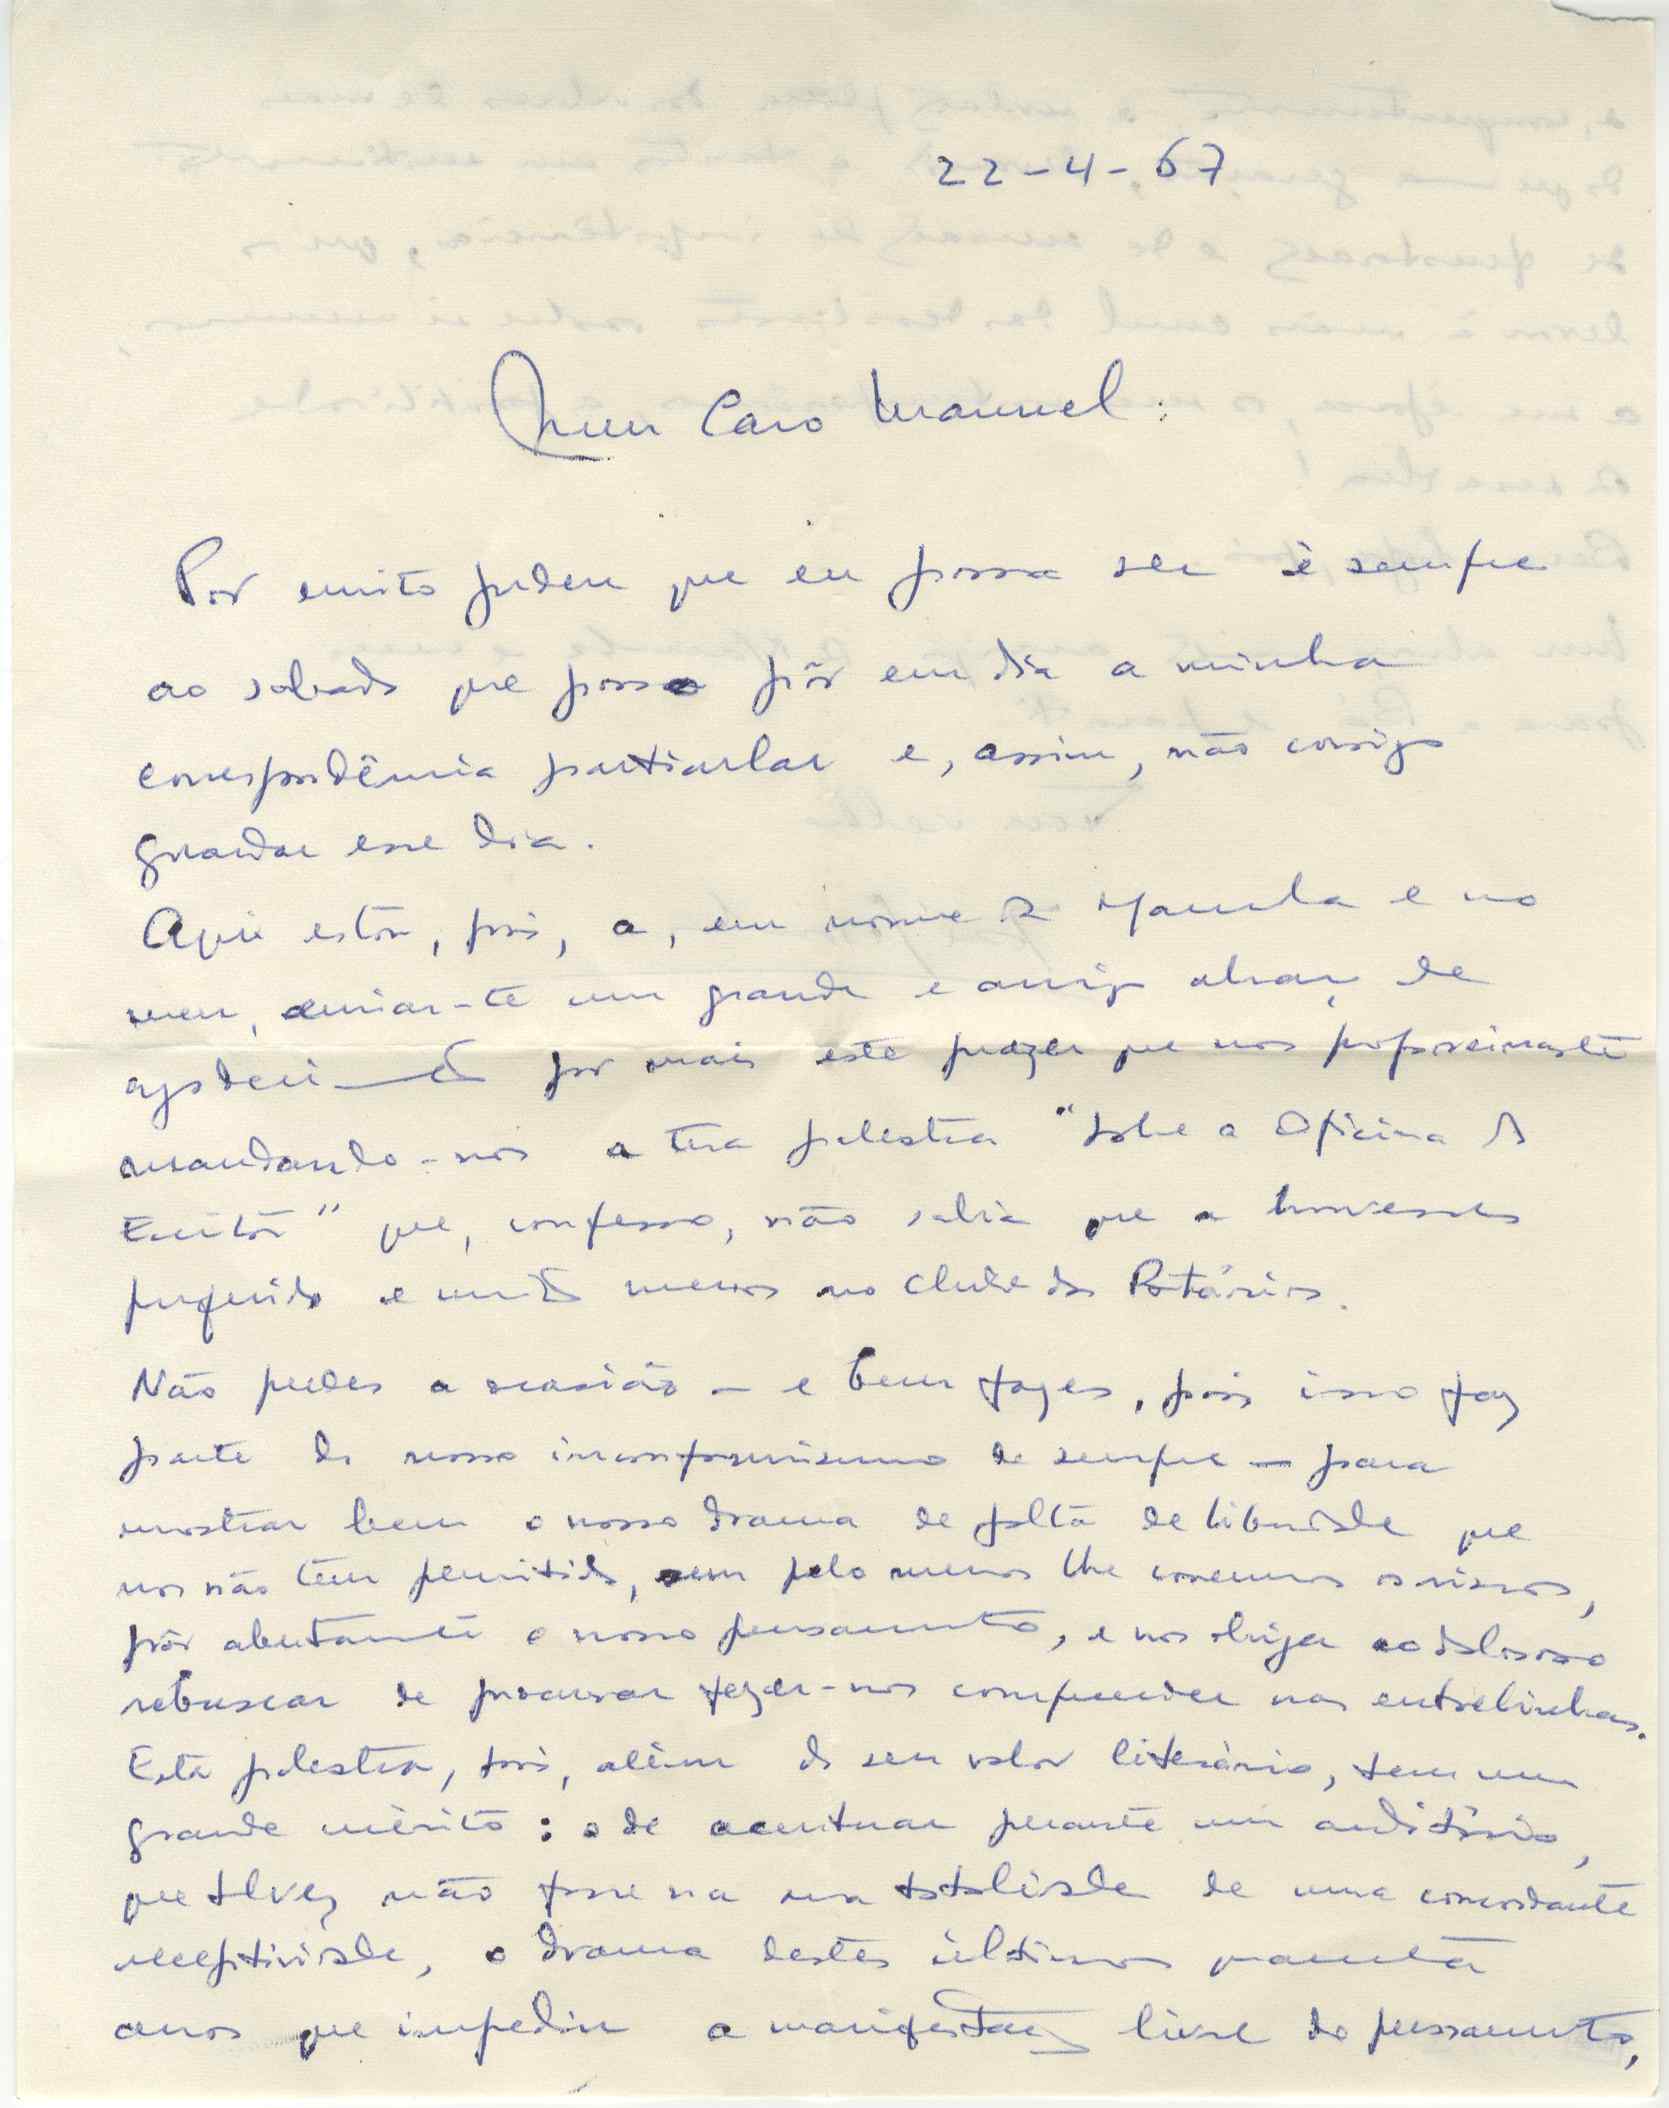 22-4-67
Meu Caro Manuel:
Por muito judeu que eu possa ser é sempre
ao sabado que posso pôr em dia a minha
correspondência particular e, assim, não consigo
guardar esse dia.
Aqui estou, pois, a, em nome de Manuela e no
meu, enviar-te um grande e amigo abraço de
agradecimento por mais este prazer que nos proporcionaste
mandando-nos a tua palestra "Sobre a Oficina do
Escritor" que, confesso, não sabia que a houvesses
proferido e muito menos no Clube dos Rotários.
Não perdes a ocasião - e bem fazes, pois isso faz
parte do nosso inconformismo de sempre - para
mostrar bem o nosso drama de falta de liberdade que
nos não tem permitido, sem pelo menos lhe corrermos os riscos,
pôr abertamente o nosso pensamento, e nos obriga ao doloroso
rebuscar de procurar fazer-nos compreender nas entrelinhas.
Esta palestra, pois, além do seu valor literário, tem um
grande mérito: o de acentuar perante um auditório,
que talvez não fosse na sua totalidade de uma concordante
receptividade, o drama destes últimos quarenta
anos que impediu a manifestação livre do pensamento,